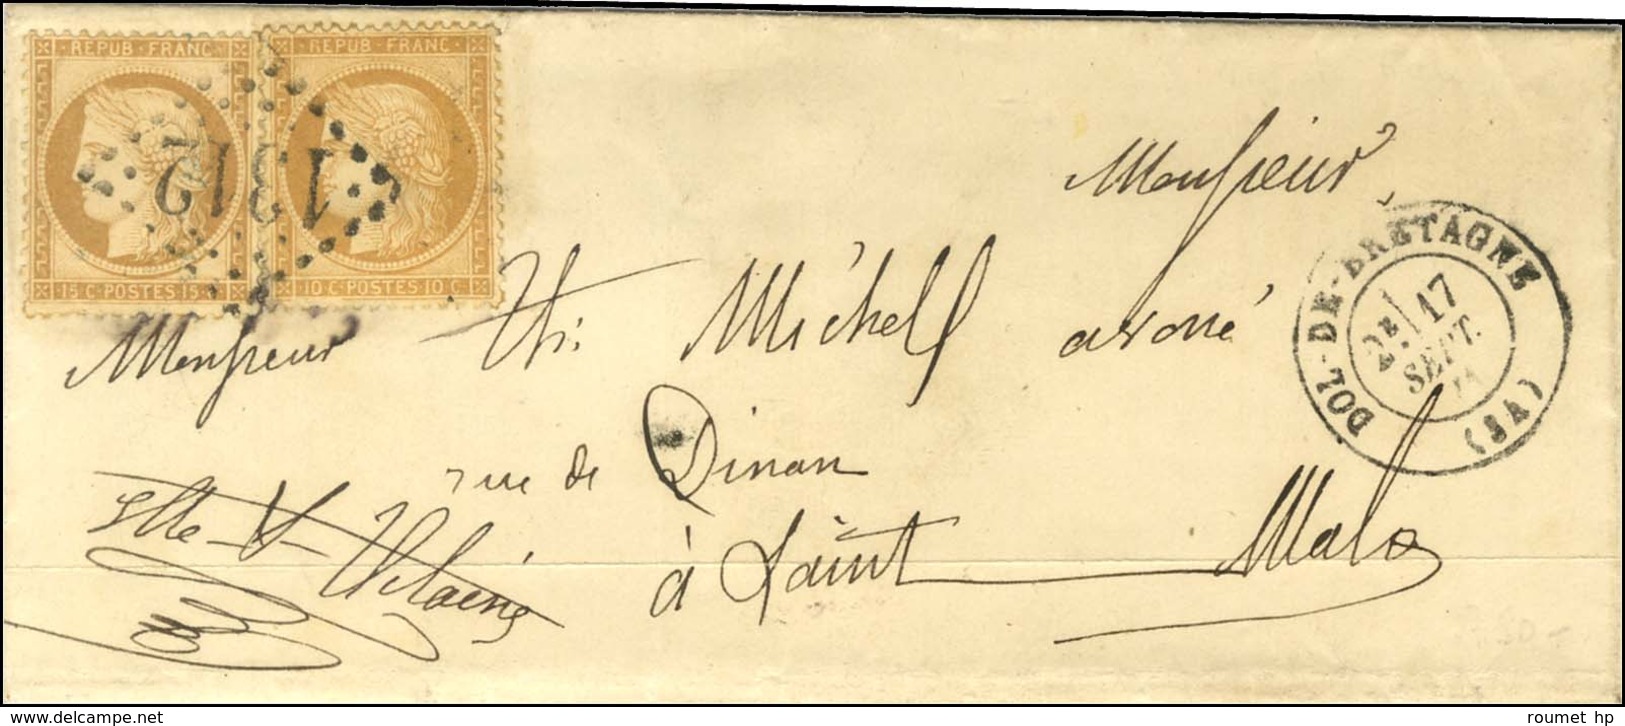 REPUB·FRANC·
REPUB·FRANC·
1312
15 C·POSTES·15 C
10 C·POSTES·10 C
Monsieur
Monsieur Th: Michell avoué
rue de Dinan
à Saint Malo
Ille & Vilaine
DOL-DE-BRETAGNE
2E 17
SEPT.
71
(34)
roumet hp